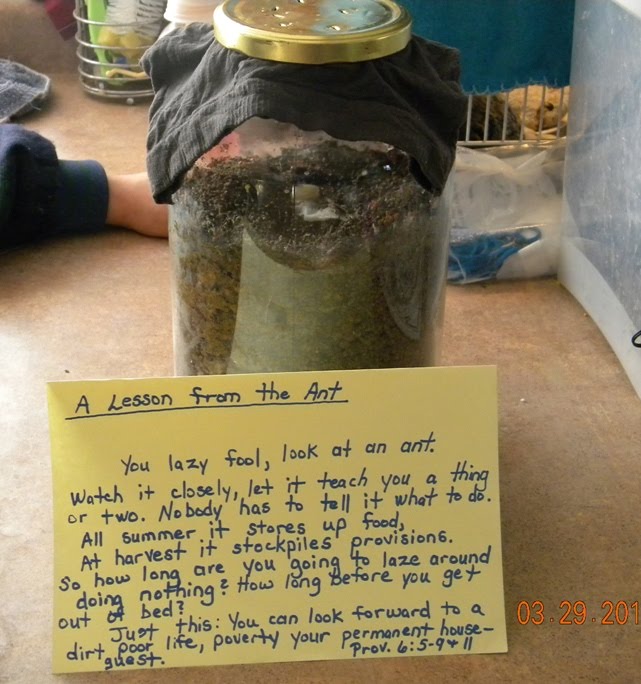 A Lesson from the Ant
You lazy fool, look at an ant.
Watch it closely, let it teach you a thing
or two. Nobody has to tell it what to do.
All summer it stores up food,
At harvest it stockpiles provisions.
So how long are you going to laze around
doing nothing? How long before you get
out of bed?
Just this: You can look forward to a
dirt poor life, poverty your permanent house-
guest.
Prov. 6:5-9 & 11
03.29.201